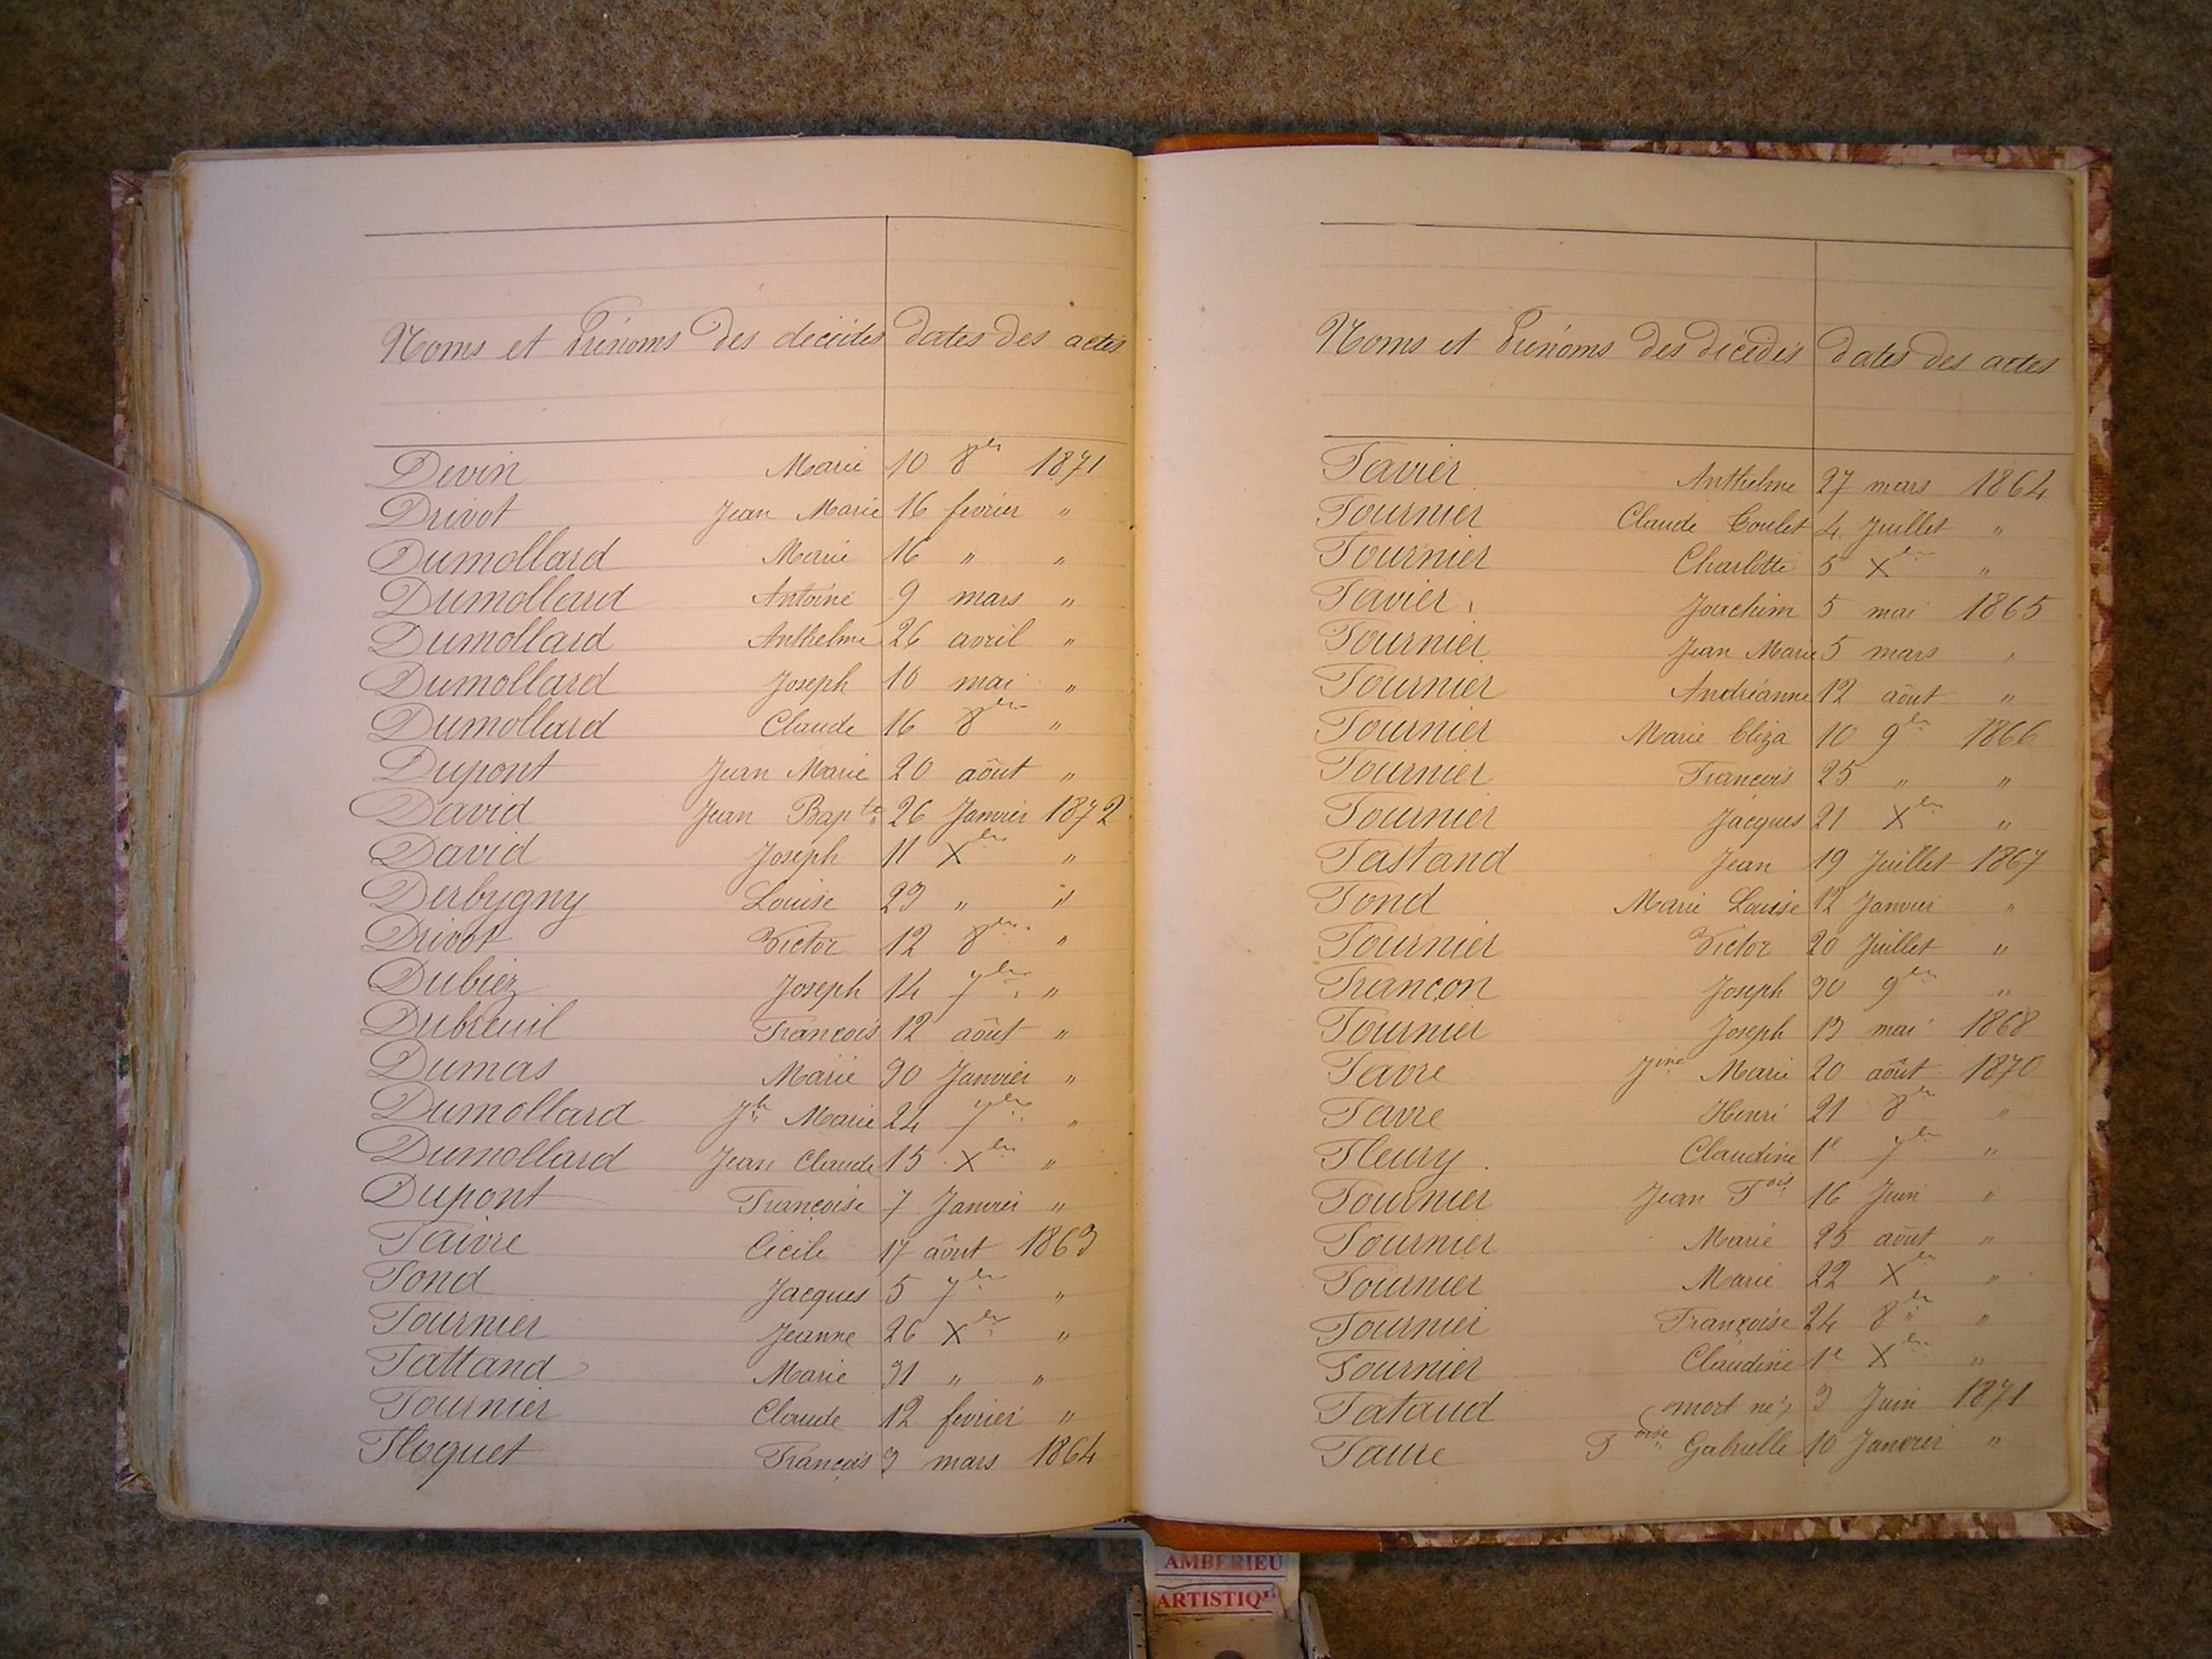 Noms et Prénoms des décédés dates des actes
Devin Marie 10 8bre 1871
Drivot Jean Marie 16 février "
Dumollard Marie 16 " "
Dumollard Antoine 9 mars "
Dumollard Anthelme 26 avril "
Dumollard Joseph 10 mai "
Dumollard Claude 16 8bre "
Dupont Jean Marie 20 août "
David Jean Bapte 26 Janvier 1872
David Joseph 11 Xbre "
Derbygny Louise 23 " "
Drivot Victor 12 8bre "
Dubiez Joseph 14 7bre "
Dubreuil François 12 août "
Dumas Marie 30 Janvier "
Dumollard Jh Marie 24 7bre "
Dumollard Jean Claude 15 Xbre "
Dupont Françoise 7 Janvier "
Faivre Cécile 17 août 1863
Fond Jacques 5 7bre "
Fournier Jeanne 26 Xbre "
Fattand Marie 31 " "
Fournier Claude 12 fevrier "
Floquet François 3 mars 1864
Noms et Prénoms des décédés dates des actes
Favier Anthelme 27 mars 1864
Fournier Claude Coulet 4 Juillet "
Fournier Charlotte 5 Xbre "
Favier Joachim 5 mai 1865
Fournier Jean Marie 5 mars "
Fournier Andréanne 12 août "
Fournier Marie Eliza 10 9bre 1866
Fournier François 25 " "
Fournier Jacques 21 Xbre "
Fastand Jean 19 Juillet 1867
Fond Marie Louise 12 Janvier "
Fournier Victor 20 Juillet "
Françon Joseph 30 9bre "
Fournier Joseph 13 mai 1868
Favre Jine Marie 20 août 1870
Favre Henri 21 8bre "
Fleury Claudine 1e 7bre "
Fournier Jean Fois 16 Juin "
Fournier Marie 25 août "
Fournier Marie 22 Xbre "
Fournier Françoise 24 8bre "
Fournier Claudine 1e Xbre "
Fataud (mort né) 3 Juin 1871
Faure Foise Gabrielle 10 Janvier "
AMBERIEU
ARTISTIQU